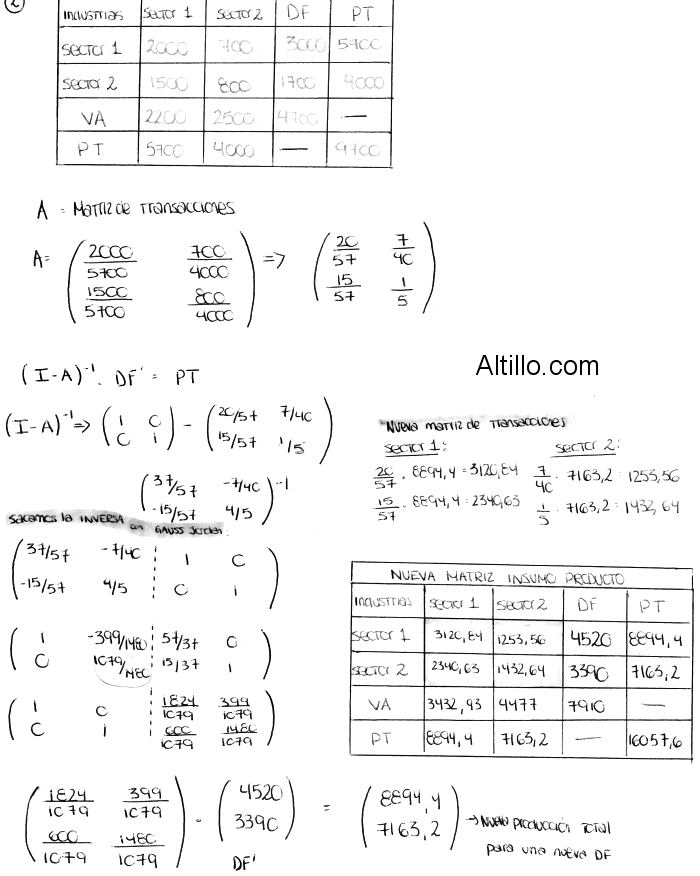 2
Industrias Sector 1 Sector 2 DF PT
Sector 1 2000 700 3000 5700
Sector 2 1500 800 1700 4000
VA 2200 2500 4700 —
PT 5700 4000 — 9700
A = Matriz de Transacciones
A = ( 2000/5700 700/4000 ) => ( 20/57 7/40 )
( 1500/5700 800/4000 ) ( 15/57 1/5 )
Altillo.com
(I-A)⁻¹ . DF' = PT
(I-A)⁻¹ => ( 1 0 ) - ( 20/57 7/40 )
( 0 1 ) ( 15/57 1/5 )
( 37/57 -7/40 )⁻¹
( -15/57 4/5 )
Sacamos la INVERSA en GAUSS Jordan:
( 37/57 -7/40 ¦ 1 0 )
( -15/57 4/5 ¦ 0 1 )
( 1 -399/1480 ¦ 57/37 0 )
( 0 1079/1480 ¦ 15/37 1 )
( 1 0 ¦ 1824/1079 399/1079 )
( 0 1 ¦ 600/1079 1480/1079 )
Nueva matriz de Transacciones
Sector 1: Sector 2:
20/57 . 8894,4 = 3120,84 7/40 . 7163,2 = 1253,56
15/57 . 8894,4 = 2340,63 1/5 . 7163,2 = 1432,64
NUEVA MATRIZ INSUMO PRODUCTO
Industrias Sector 1 Sector 2 DF PT
Sector 1 3120,84 1253,56 4520 8894,4
Sector 2 2340,63 1432,64 3390 7163,2
VA 3432,93 4477 7910 —
PT 8894,4 7163,2 — 16057,6
( 1824/1079 399/1079 ) . ( 4520 ) = ( 8894,4 )
( 600/1079 1480/1079 ) ( 3390 ) ( 7163,2 ) → Nueva producción Total
DF' para una nueva DF